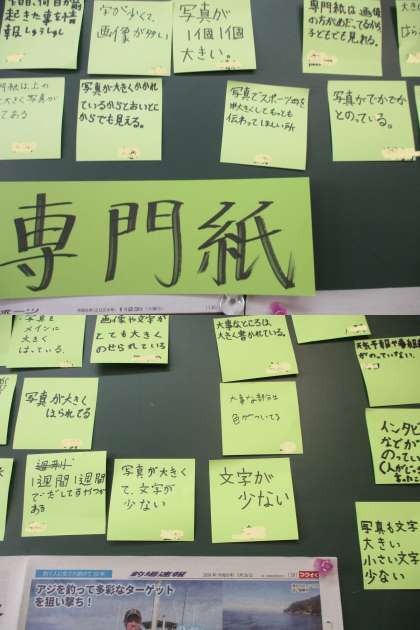 字が少くて、
画像が多い
写真が
1個1個
大きい。
専門紙は画像
の方がめだってるから
子どもでも見れる。
専門紙は上の
大きく写真が
写真が大きくかかれ
ているからとおいとこ
からでも見える。
写真でスポーツめを
大きくしてもっとも
伝わってほしい所
写真がでかでか
とのっている。
専門紙
写真を
メインに
大きく
はっている。
画像や文字が
とても大きく
のせられている
大事なところは、
大きく書かれている。
がのっていない。
写真が大きく
はられてる
大事な部分は
色がついてる
インタビ
などが
のってい
1週間1週間
ある
写真が大きく
て、文字が
少ない
文字が
少ない
写真も文字
大きい
小さい文字
少ない
釣場速報
アジを釣って多彩なターゲット
を狙い撃ち！